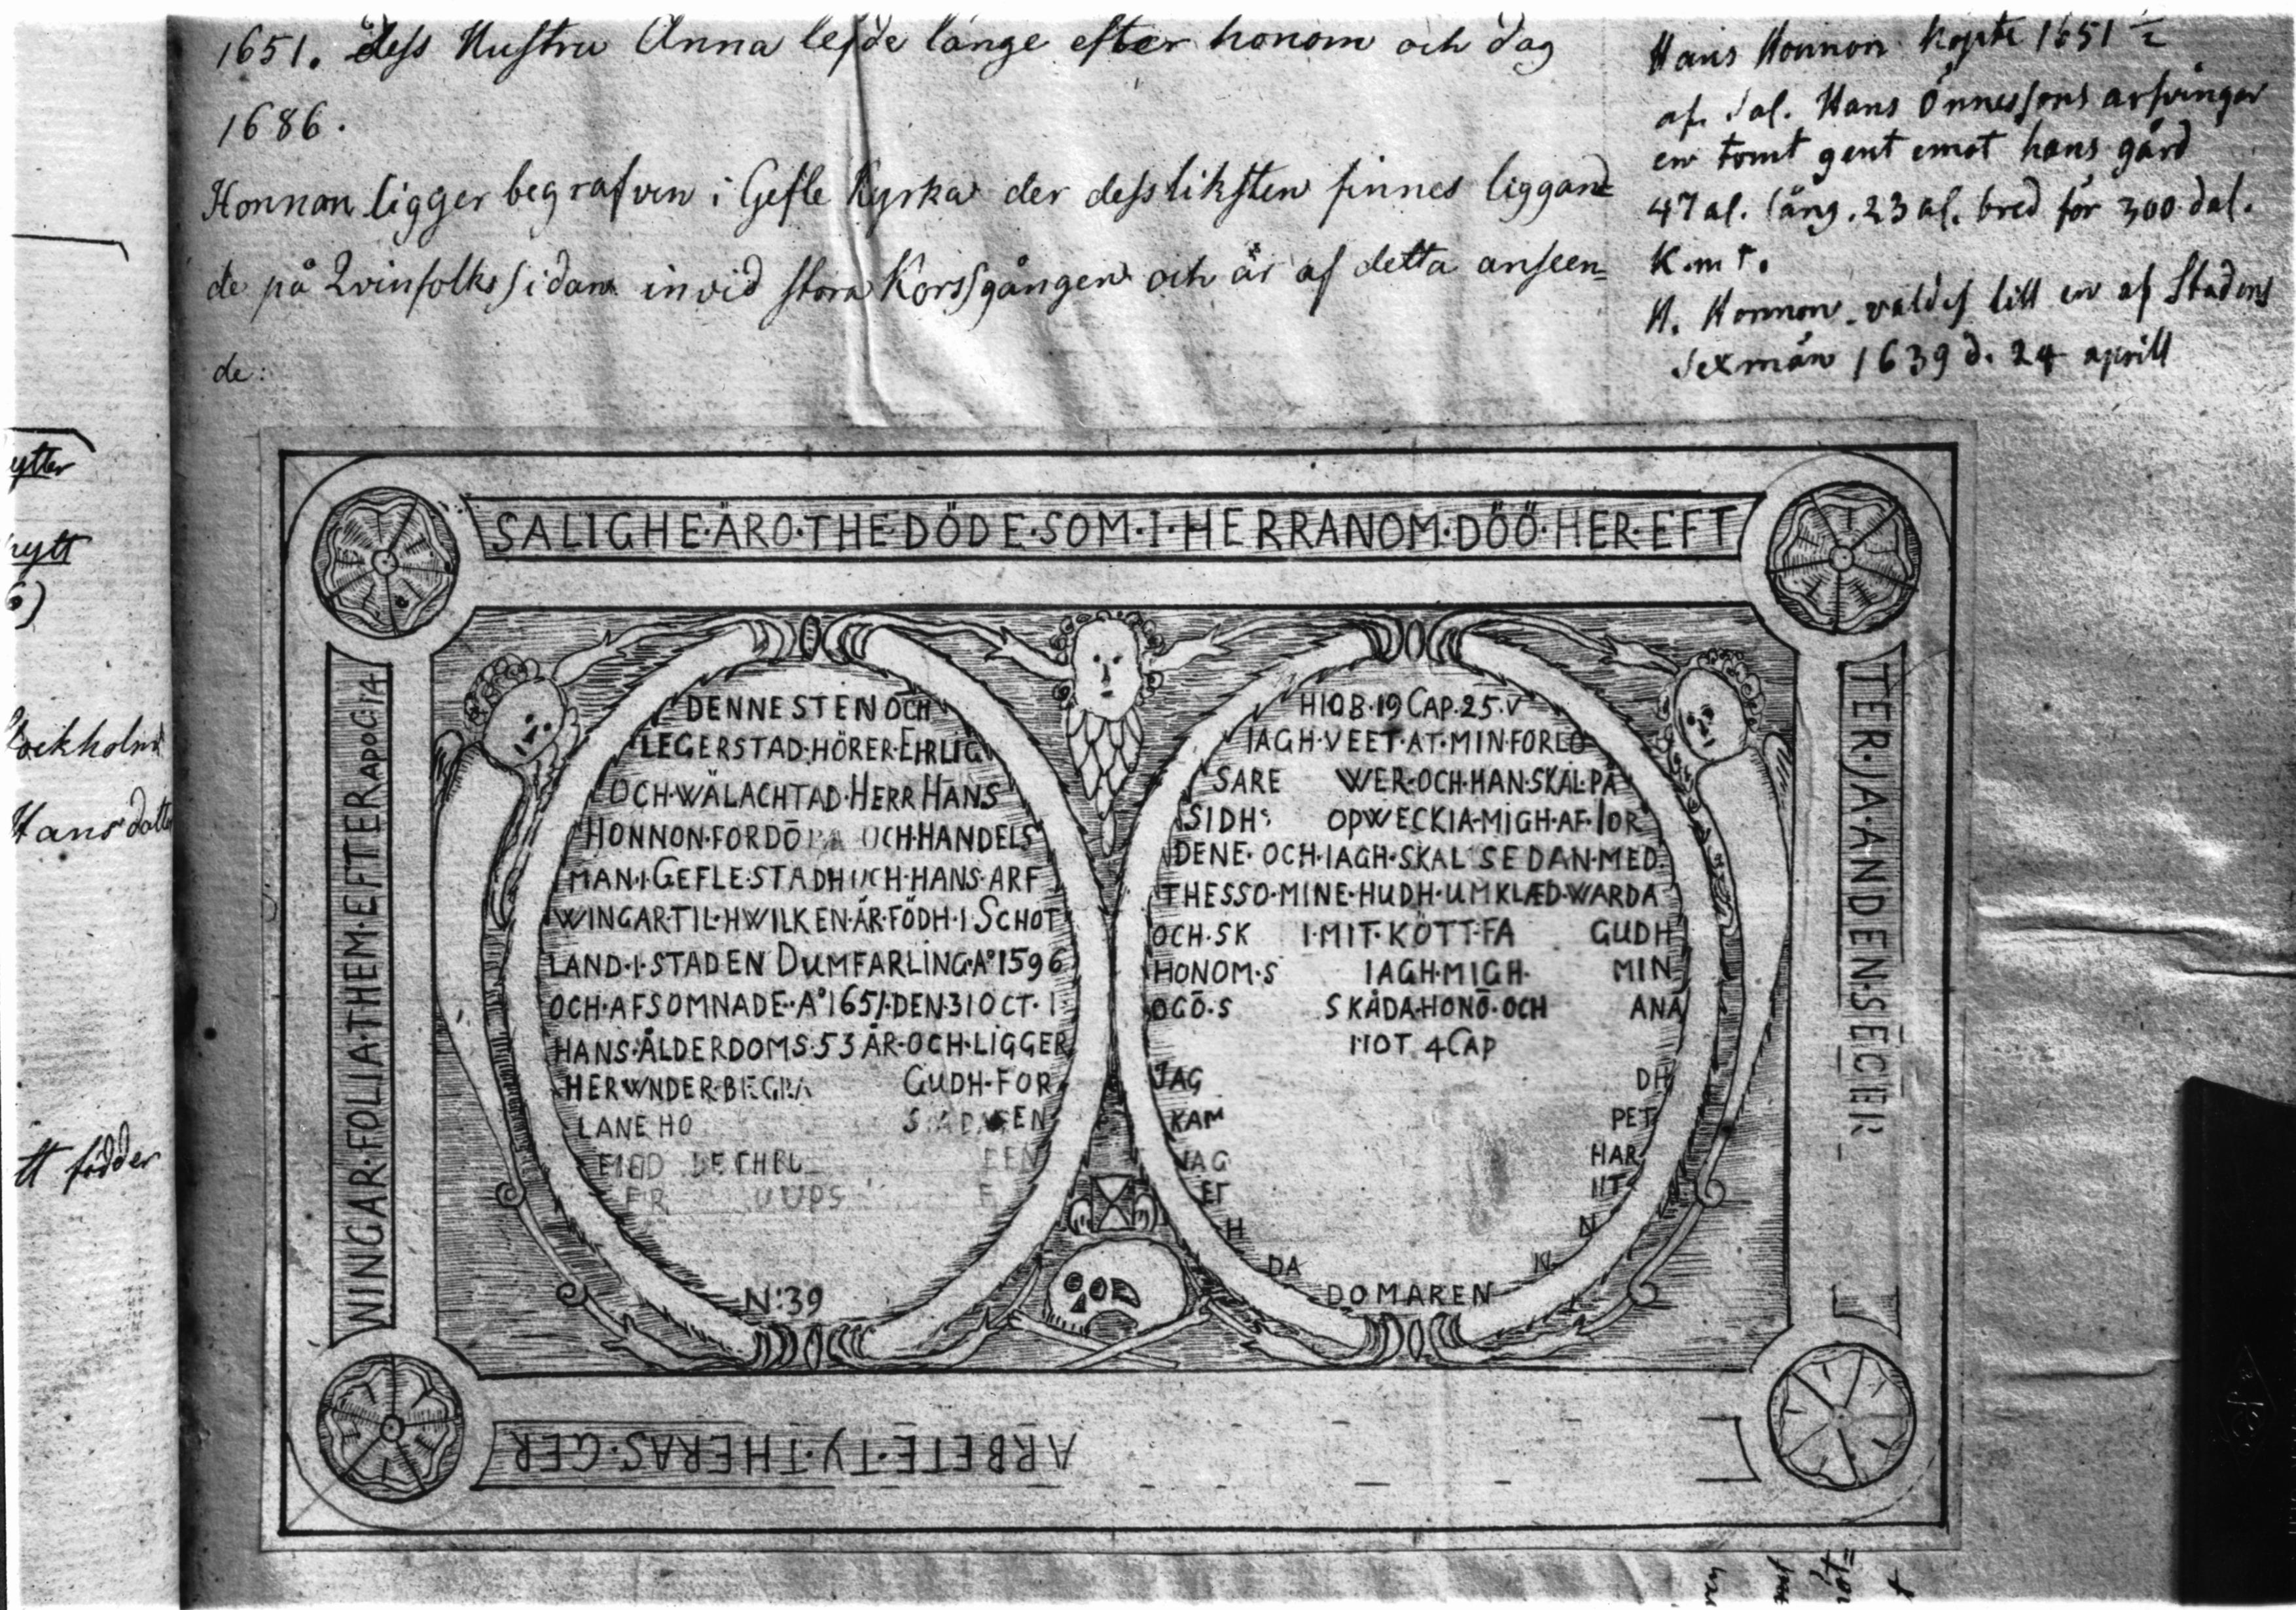 1651. dess Hustru Anna lefde länge efter honom och dog
1686.
Honnon ligger begrafven i Gefle Kyrka der dess liksten finnes liggan=
de på Qvinfolks sidan invid stora Korssgången och är af detta anseen=
de:
Hans Honnon köpte 1651
af Sal. Hans Önnessons arfvingar
en tomt gent emot hans gård
47 al. lång. 23 al. bred för 300 dal.
K.mt.
H. Honnon valdes till en af Stadens
sexmän 1639 d. 24 aprill
ytter
nytt
6)
tockholm
Hansdotte
tt födder
SALIGHE·ÄRO·THE·DÖDE·SOM·I·HERRANOM·DÖÖ·HER·EFT
TER·JA·ANDEN·SEC
ARBETE·TY·THERAS·GER
NINGAR·FOLIA·THEM·EFTER APOC 14
DENNE STEN OCH
LEGERSTAD·HÖRER·EHRLIG
OCH·WÄLACHTAD·HERR HANS
HONNON·FORDÖ OCH·HANDELS
MAN·I·GEFLE·STADH OCH·HANS·ARF
WINGAR·TIL·HWILKEN·ÄR·FÖDH·I SCHOT
LAND·I·STADEN DUMFARLING·A° 1596
OCH·AFSOMNADE·A° 1651·DEN·31 OCT·I
HANS·ÅLDERDOMS·53 ÅR·OCH·LIGGER
HER WNDER·BEGRA GUDH·FOR
LANE HO EN
N:39
HIOB·19 CAP·25·V
IAGH·VEET·AT·MIN·FORLÖ
SARE WER·OCH·HAN·SKAL·PÅ
SIDH: OPWECKIA·MIGH·AF·IOR
DENE·OCH·IAGH·SKAL SEDAN·MED
THESSO·MINE·HUDH·UMKLÆD·WARDA
OCH·SK I·MIT·KÖTT·FA GUDH
HONOM·S IAGH·MIGH· MIN
OGÖ·S SKÅDA·HONŌ·OCH ANA
MOT 4 CAP
JAG DH
KAM PET
JAG HAR
ET IIT
H N
DA N
DOMAREN